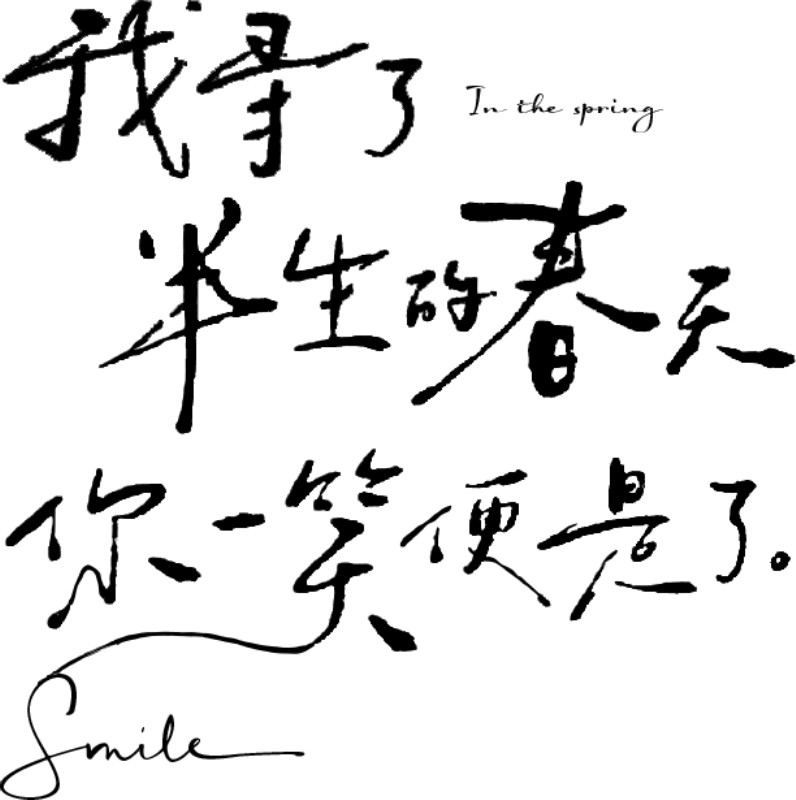 我寻了 In the spring
半生的春天
你一笑便是了。
Smile